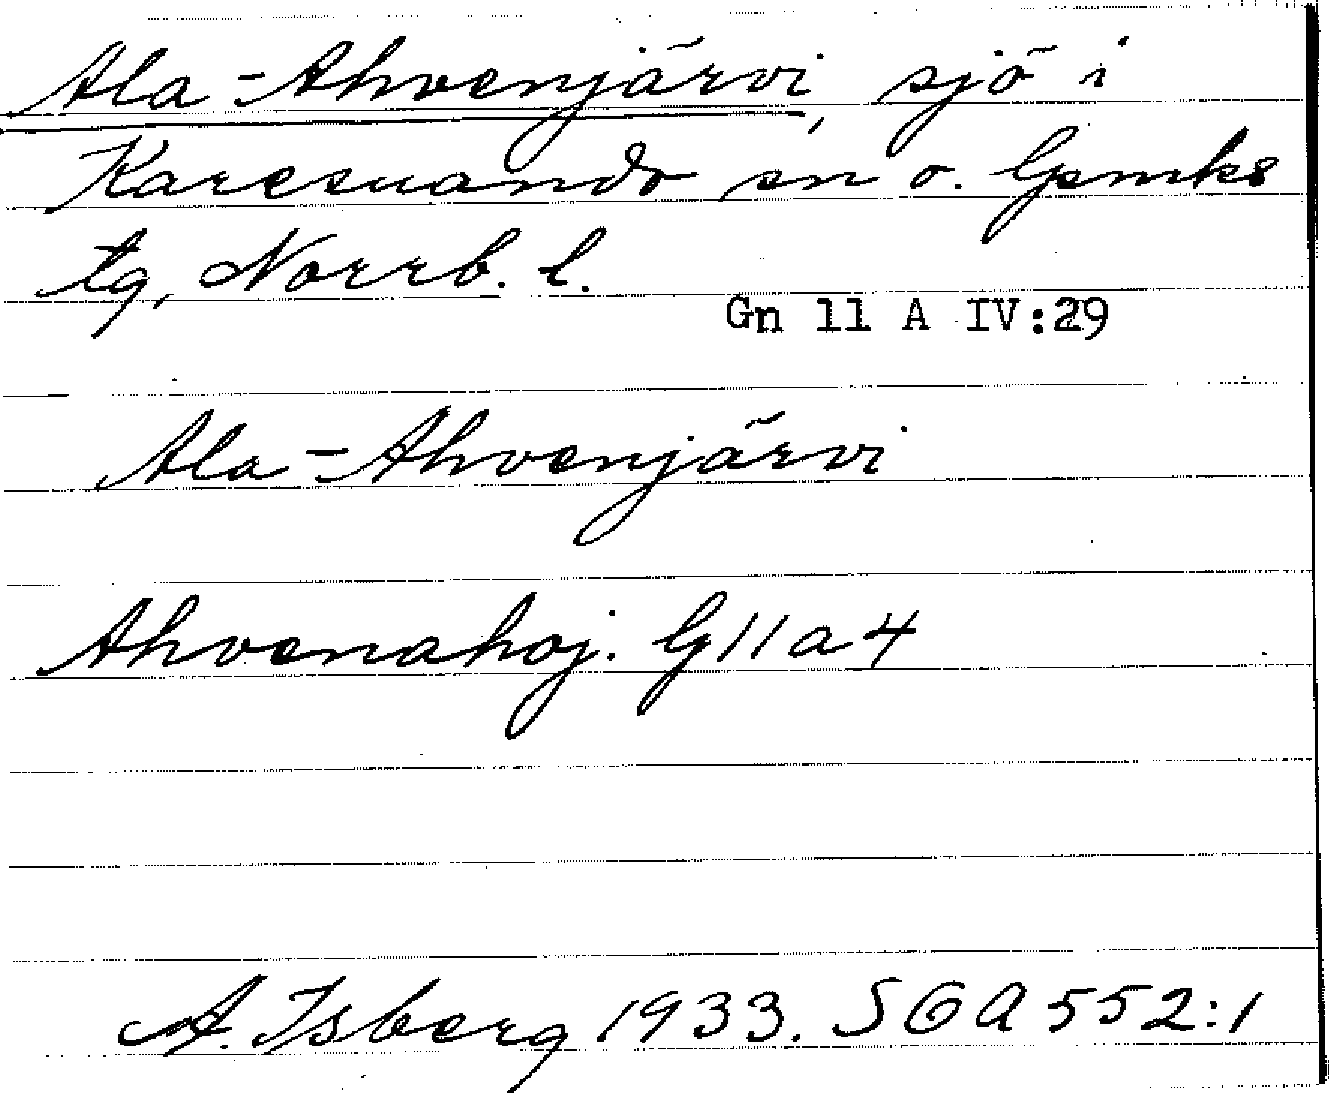 Ala-Ahvenjärvi, sjö i
Karesuando sn o. Gsmks
tg, Norrb. l.
Gn 11 A IV:29
Ala-Ahvenjärvi
Ahvenahoj. G11a4
A. Isberg 1933. SGA 552:1